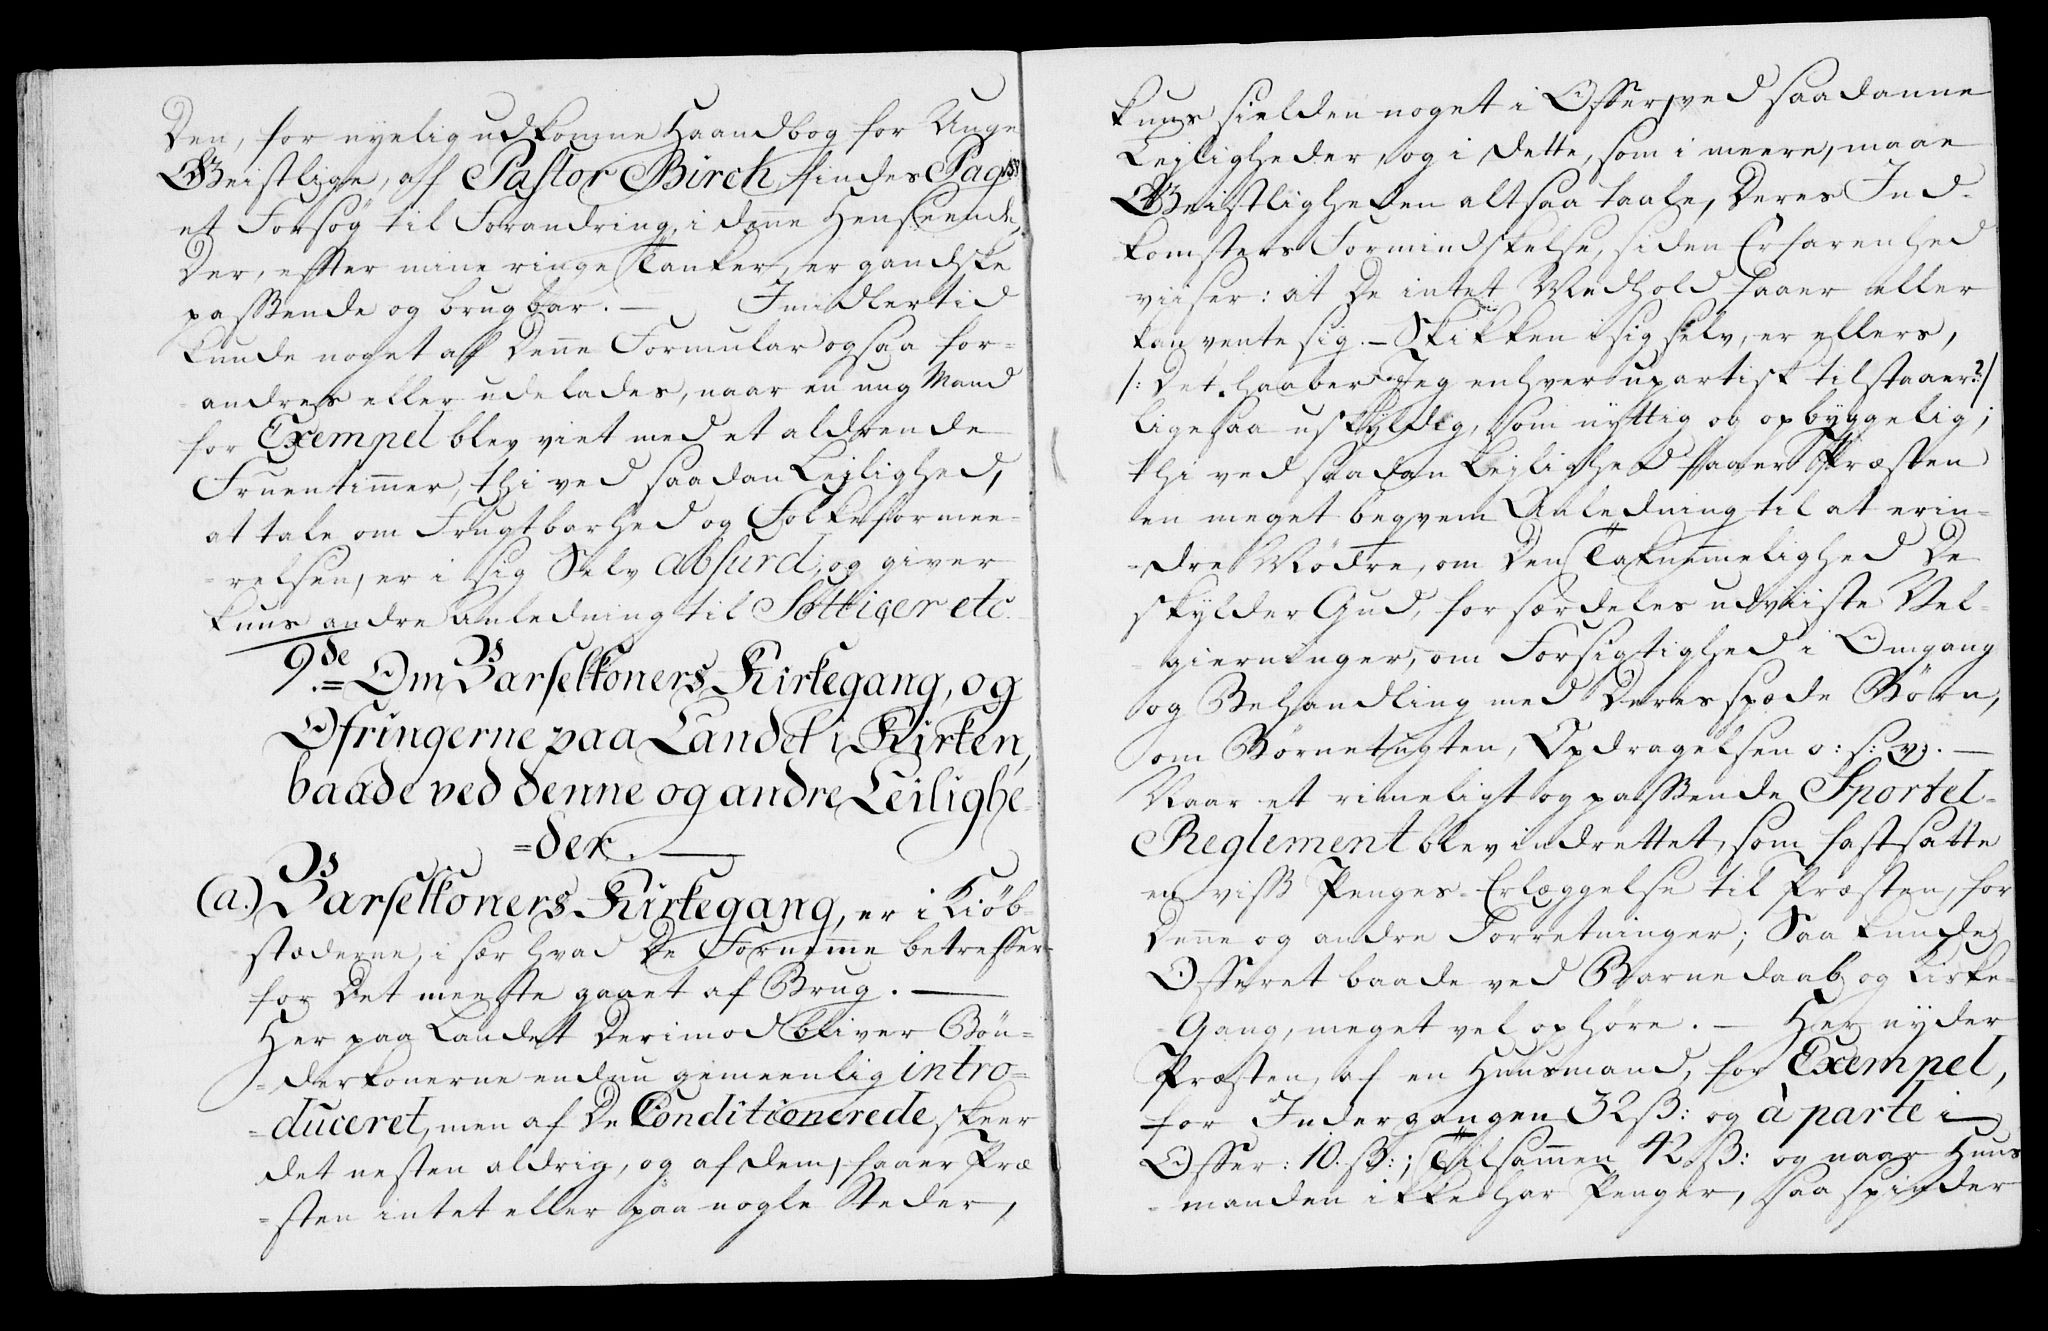 Den, for nyelig udkomne Haandbog for Unge
Geistlige, af Pastor Birch, findes Pag
et Forsøg til Forandring, i denne Henseende,
Der, efter mine ringe Tanker, er gandske
passende og brugbar. — Imidlertid
kunde noget af Denne Formular ogsaa for-
andres eller udelades, naar en ung Mand
for Exempel blev viet med et aldrende
Fruentimmer, thi ved saadan Lejlighed,
at tale om Frugtbarhed og Folkeformee-
=relsen, er i sig Selv absurd, og giver
kuns andre Anledning til Sottiser etc.
9de = Om Barselkoners Kirkegang, og
Ofringerne paa Landet i Kirken,
baade ved denne og andre Leilighe-
=der. —
(a.) Barselkoners Kirkegang, er i Kiøb-
stæderne, i sær hvad De Fornemme betreffer
for Det meeste gaaet af Brug. —
Her paa Landet Derimod bliver Bøn-
=derkonerne endnu gemeenlig intro=
=duceret, men af De Conditionerede skeer
det nesten aldrig, og af dem, faaer Præ
=sten intet eller paa nogle Steder,
kuns sielden noget i Offer, ved saadanne
Lejligheder, og i dette, som i meere, maae
Geistligheden altsaa taale, Deres Ind-
komsters Formindskelse, siden Erfarenhed
viiser: at De intet Medhold faaer eller
kan vente sig. — Skikken i sig selv, er ellers,
/: Det haaber Jeg enhver upartisk tilstaaer? :/
ligesaa uskyldig, som nyttig og opbyggelig;
thi ved saadan Lejlighed faaer Præsten
en meget beqvem Anledning til at erin-
=dre Mødre, om Den Taknemmelighed De
skylder Gud, for særdeles udviiste Vel-
=gierninger, om Forsigtighed i Omgang
og Behandling med Deres spæde Børn,
om Børnetugten, Opdragelsen o: s: v. —
Naar et rimeligt og passende Sportel-
Reglement blev indrettet, som fastsatte
en viss Penges-Erlæggelse til Præsten, for
Denne og andre Forretninger; Saa kunde
Offeret baade ved Barnedaab og Kirke-
=Gang, meget vel ophøre. — Her nyder
Præsten, af en Huusmand, for Exempel,
for Indergangen 32 ß: og à parte i
Offer: 10. ß:; Tilsammen 42 ß: og naar Huus
=manden ikke har Penger, saa spinder